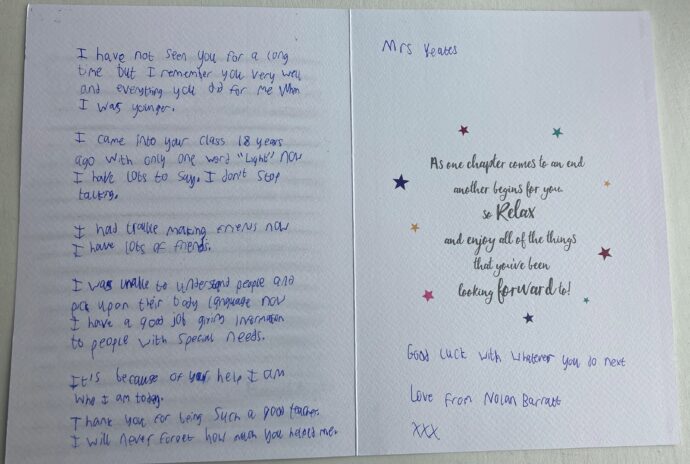 I have not seen you for a long
time but I remember you very well
and everything you did for me when
I was younger.
I came into your class 18 years
ago with only one word "Light" now
I have lots to say. I don't stop
talking.
I had trouble making friends now
I have lots of friends.
I was unable to understand people and
pick upon their body language now
I have a good job giving information
to people with special needs.
It's because of your help I am
who I am today.
Thank you for being such a good teacher.
I will never forget how much you helped me.
Mrs Yeates
As one chapter comes to an end
another begins for you.
so Relax
and enjoy all of the things
that you've been
looking forward to!
Good luck with whatever you do next
Love from Nolan Barratt
XXX